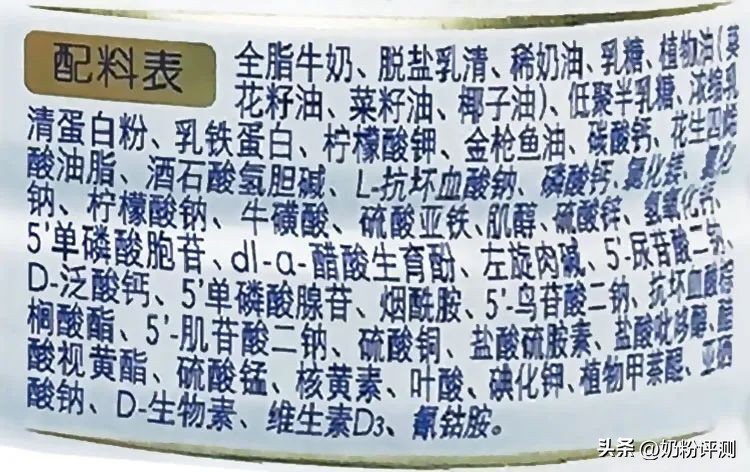 配料表
全脂牛奶、脱盐乳清、稀奶油、乳糖、植物油(葵
花籽油、菜籽油、椰子油)、低聚半乳糖、浓缩乳
清蛋白粉、乳铁蛋白、柠檬酸钾、金枪鱼油、碳酸钙、花生四烯
酸油脂、酒石酸氢胆碱、L-抗坏血酸钠、磷酸钙、氯化镁、氯化
钠、柠檬酸钠、牛磺酸、硫酸亚铁、肌醇、硫酸锌、氢氧化钙、
5'单磷酸胞苷、dl-α-醋酸生育酚、左旋肉碱、5'-尿苷酸二钠、
D-泛酸钙、5'单磷酸腺苷、烟酰胺、5'-鸟苷酸二钠、抗坏血酸棕
榈酸酯、5'-肌苷酸二钠、硫酸铜、盐酸硫胺素、盐酸吡哆醇、醋
酸视黄酯、硫酸锰、核黄素、叶酸、碘化钾、植物甲萘醌、亚硒
酸钠、D-生物素、维生素D3、氰钴胺。
头条 @奶粉评测